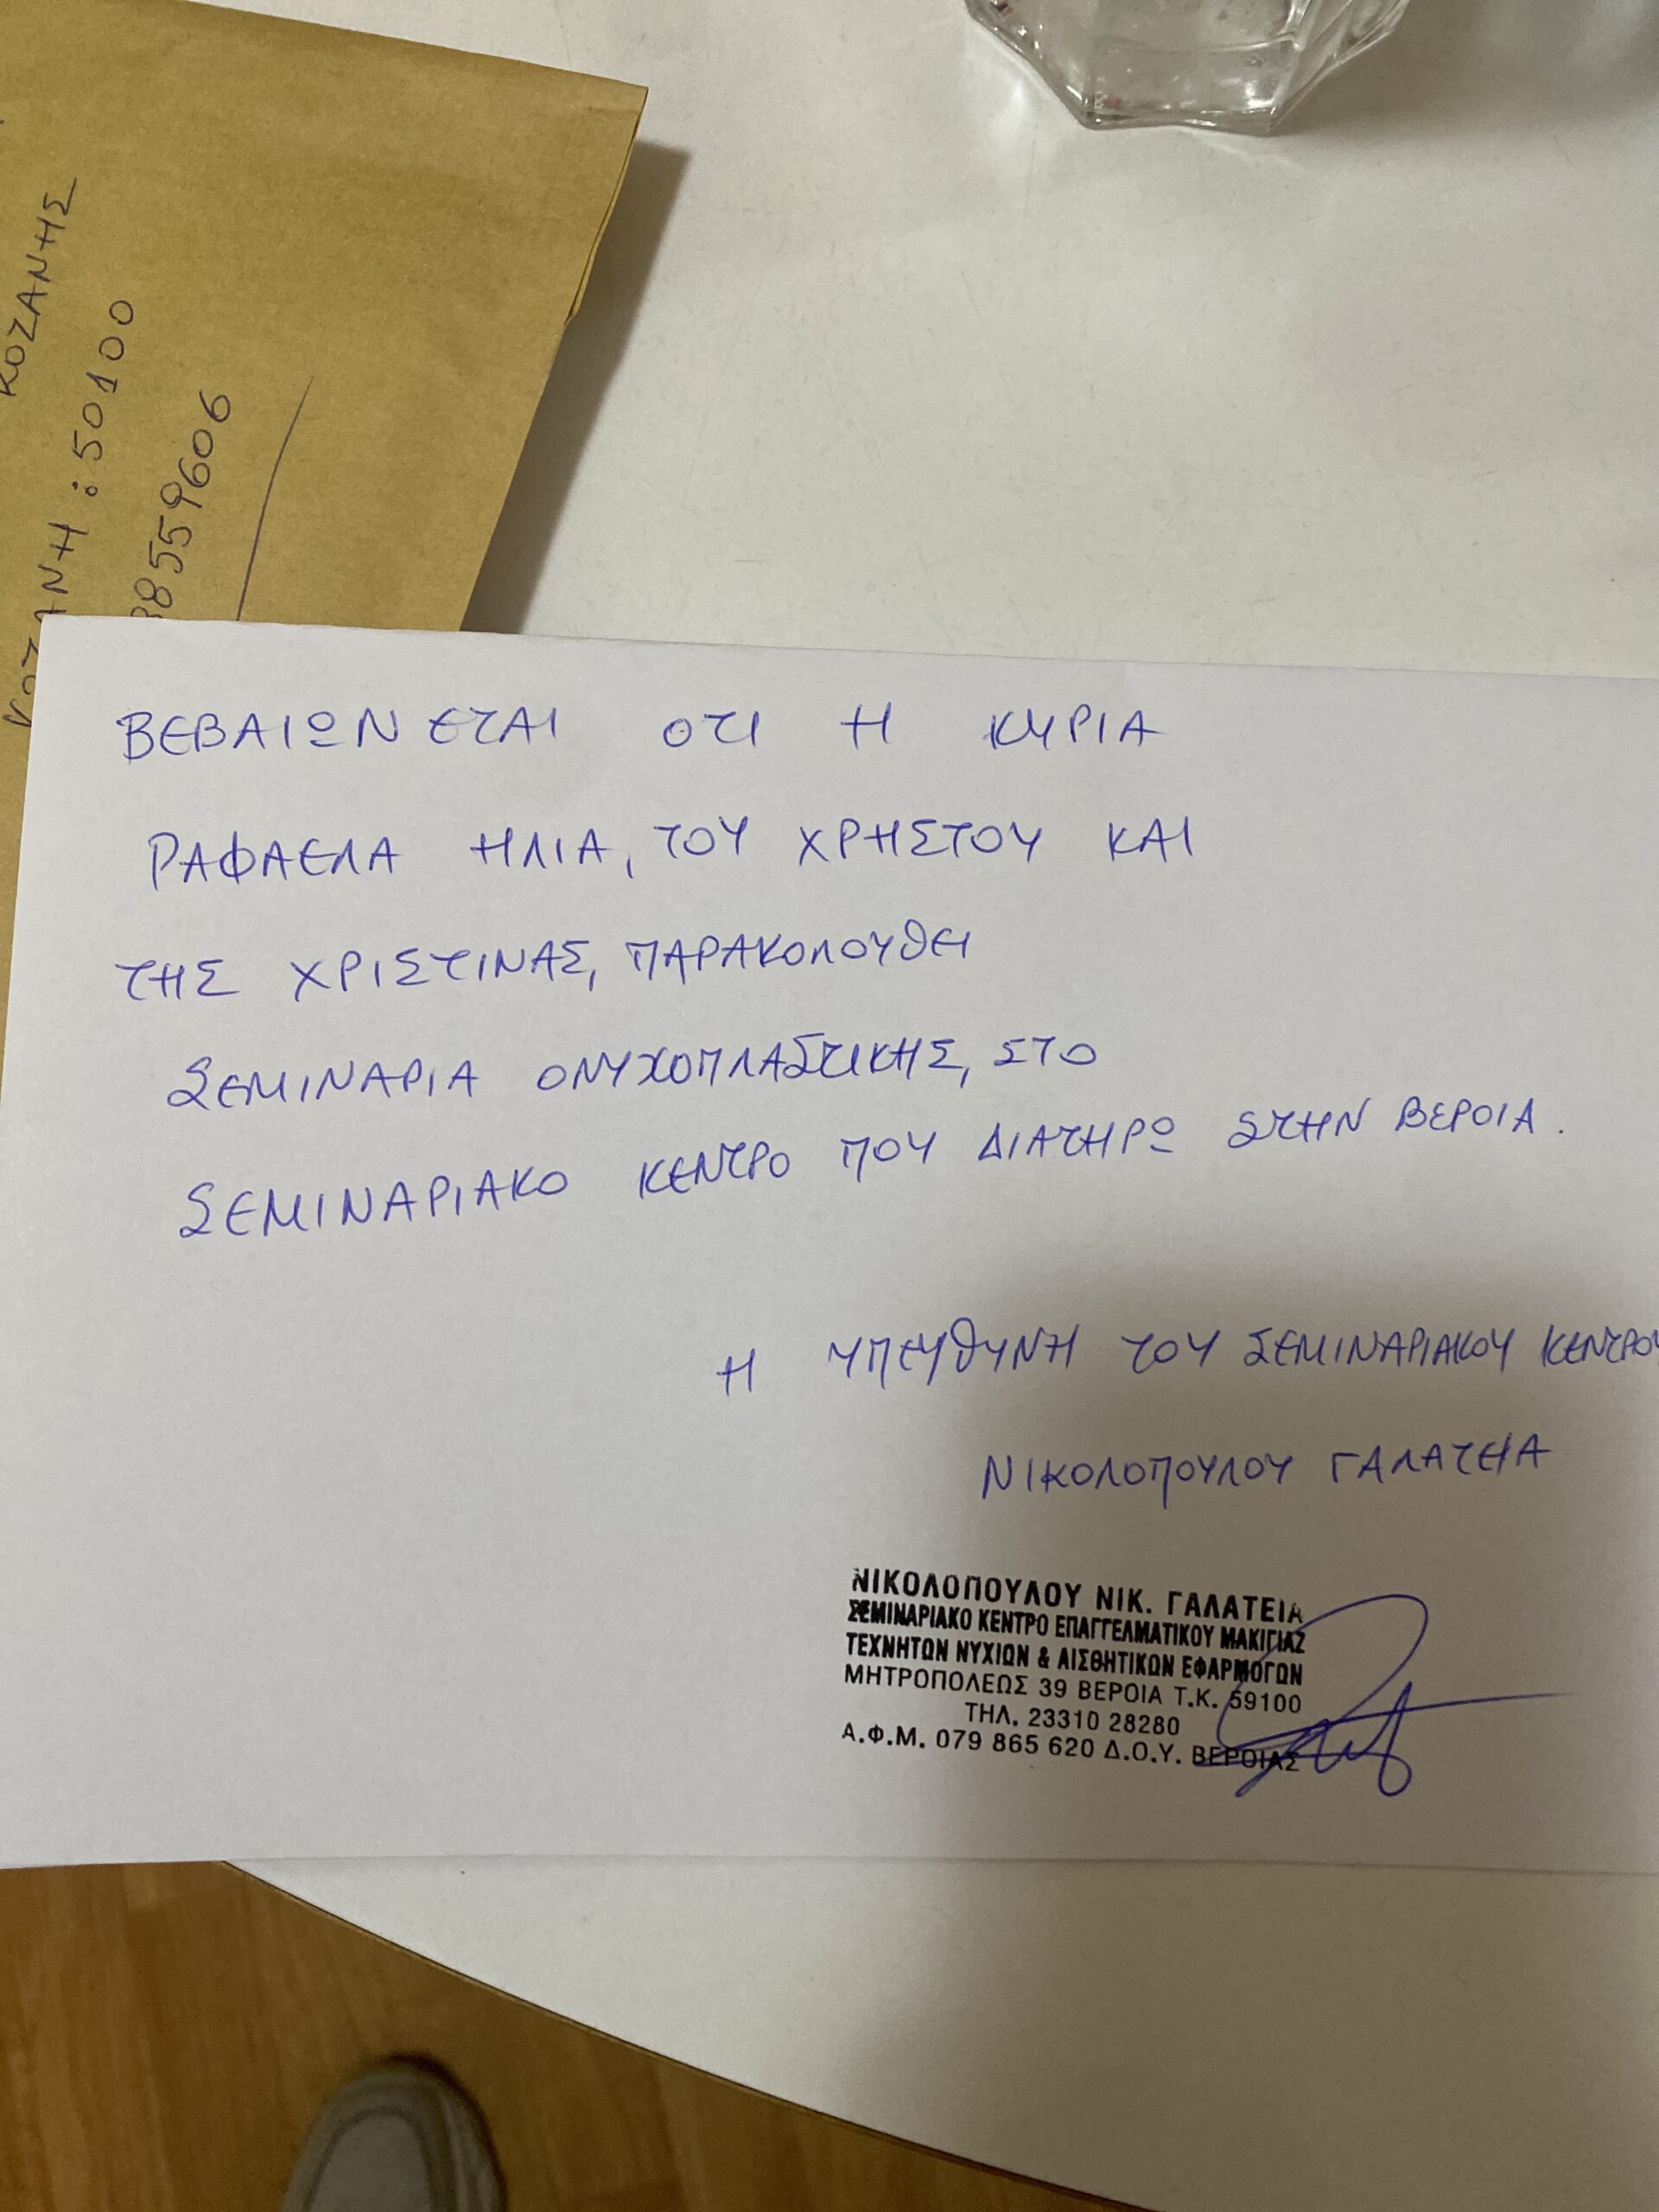 ΚΟΖΑΝΗΣ
ΚΟΖΑΝΗ : 50100
8559606
ΒΕΒΑΙΩΝΕΤΑΙ ΟΤΙ Η ΚΥΡΙΑ
ΡΑΦΑΕΛΑ ΗΛΙΑ, ΤΟΥ ΧΡΗΣΤΟΥ ΚΑΙ
ΤΗΣ ΧΡΙΣΤΙΝΑΣ, ΠΑΡΑΚΟΛΟΥΘΕΙ
ΣΕΜΙΝΑΡΙΑ ΟΝΥΧΟΠΛΑΣΤΙΚΗΣ, ΣΤΟ
ΣΕΜΙΝΑΡΙΑΚΟ ΚΕΝΤΡΟ ΠΟΥ ΔΙΑΤΗΡΩ ΣΤΗΝ ΒΕΡΟΙΑ.
Η ΥΠΕΥΘΥΝΗ ΤΟΥ ΣΕΜΙΝΑΡΙΑΚΟΥ ΚΕΝΤΡΟΥ
ΝΙΚΟΛΟΠΟΥΛΟΥ ΓΑΛΑΤΕΙΑ
ΝΙΚΟΛΟΠΟΥΛΟΥ ΝΙΚ. ΓΑΛΑΤΕΙΑ
ΣΕΜΙΝΑΡΙΑΚΟ ΚΕΝΤΡΟ ΕΠΑΓΓΕΛΜΑΤΙΚΟΥ ΜΑΚΙΓΙΑΖ
ΤΕΧΝΗΤΩΝ ΝΥΧΙΩΝ & ΑΙΣΘΗΤΙΚΩΝ ΕΦΑΡΜΟΓΩΝ
ΜΗΤΡΟΠΟΛΕΩΣ 39 ΒΕΡΟΙΑ Τ.Κ. 59100
ΤΗΛ. 23310 28280
Α.Φ.Μ. 079 865 620 Δ.Ο.Υ. ΒΕΡΟΙΑΣ